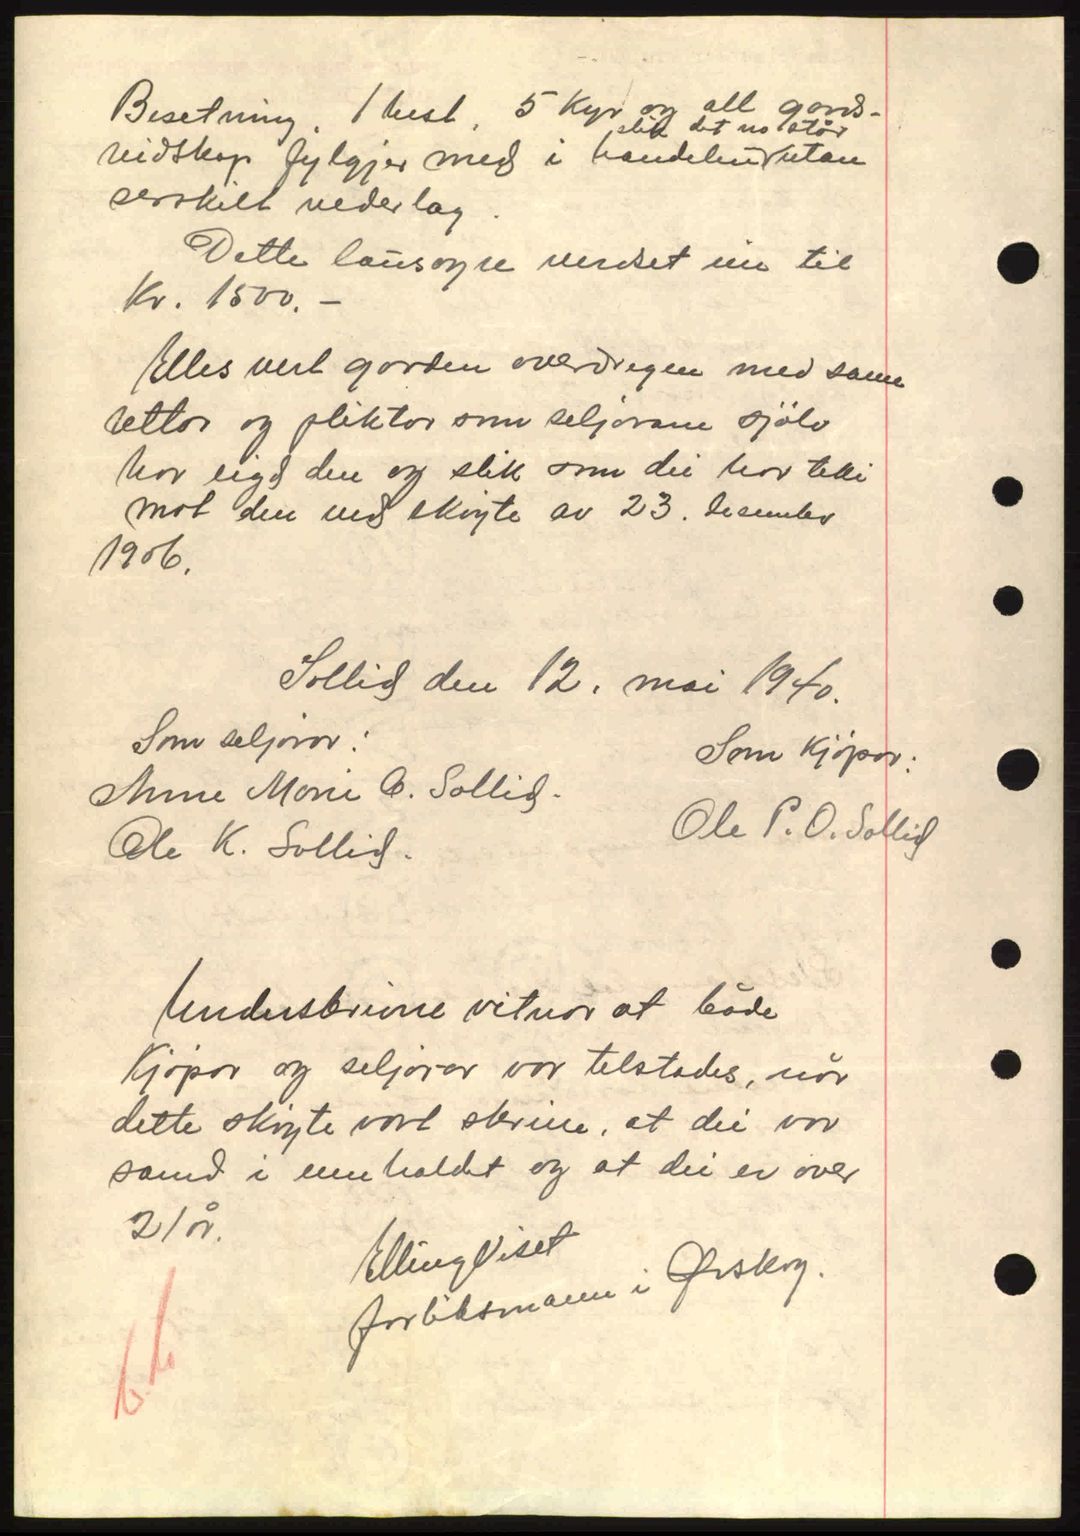 Besetning, 1 hest, 5 kyr og all gards-
reidskap fylgjer med i handelen slik det no står utan
serskilt vederlag.
Dette lausøyre verdset me til
Kr. 1500.-
Elles vert garden overdregen med same
rettar og pliktar som seljarane sjölv
har eigd den og slik som dei har teke
mot den ved skøyte av 23. desember
1906.
Sollid den 12. mai 1940.
Som seljarar:
Anne Marie C. Sollid.
Ole K. Sollid.
Som Kjøpar:
Ole P. O. Sollid
Underskrivne vitnar at både
Kjøpar og seljarar var telstades, når
dette skøyte vart skrive, at dei var
samd i innhaldet og at dei er over
21 år.
Elling Viset
forliksmann i Ørskog.